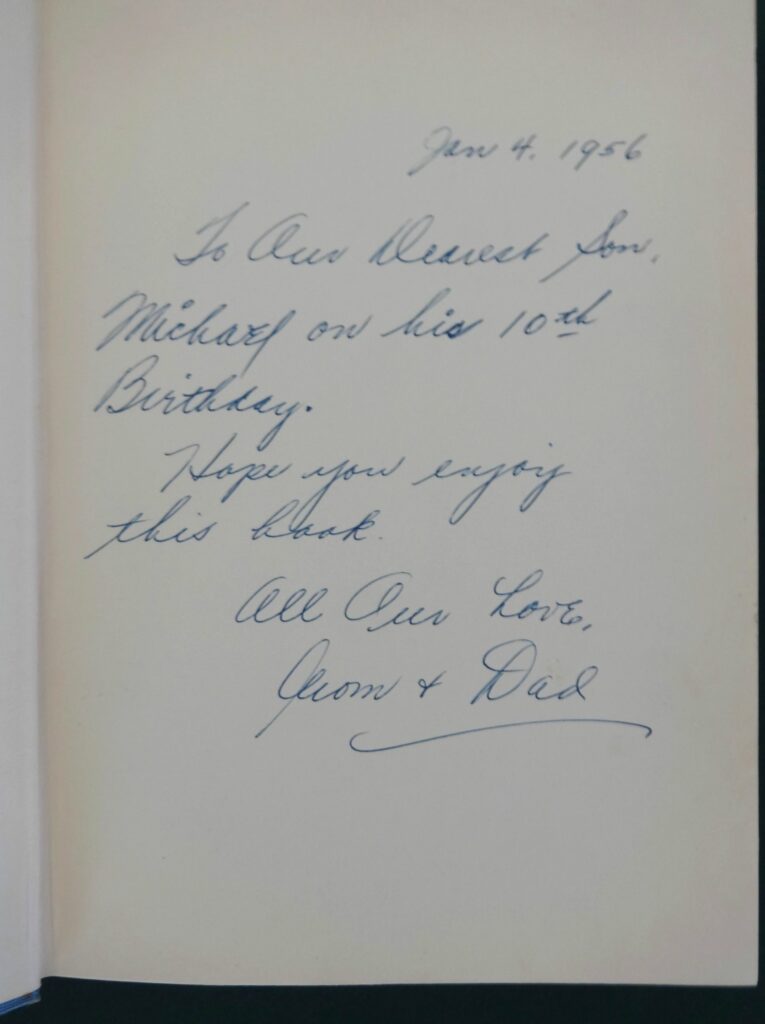 Jan 4. 1956
To Our Dearest Son,
Michael on his 10th
Birthday.
Hope you enjoy
this book.
All Our Love,
Mom & Dad